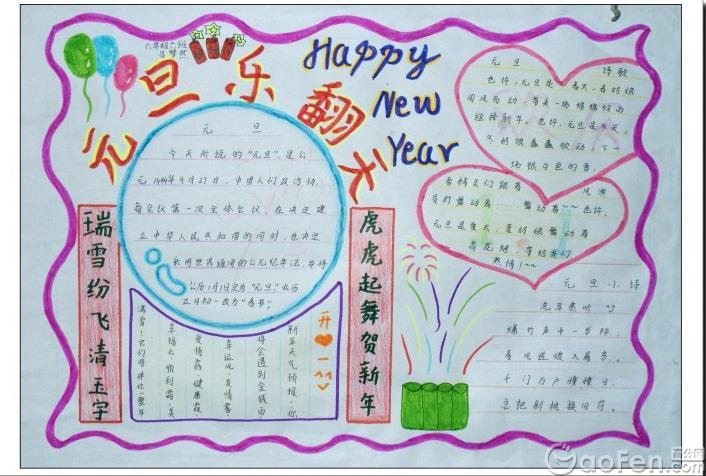 六年级六班
元旦乐翻天
Happy
New
Year
元旦
今天所说的“元旦”，是公
元1949年9月27日，中国人们政治协
商会议第一次全体会议，在决定建
立中华人民共和国的同时，也决定
采用世界通用的公元纪年法，书将
公历1月1日定为“元旦”，农历
正月初一改为“春书”。
元旦 诗歌
也许，元旦是一春天，春姑娘
闻风而动，带来一场绵绵细雨
迎接新年。也许，元旦是冬天，
冬姑娘蠢蠢欲动，下一
场银白色的雪。
雪精灵们跟着 风演
员们舞动着……舞动着~~也许，
元旦是夏天，夏姑娘舞动着
荷花裙，带给我们
热情！~~
瑞雪纷飞清玉宇
虎虎起舞贺新年
开心一
新年天气预报：你
将会遇到金钱雨、
幸运风、友情雾、
爱情露、健康霞、
幸福云、顺利霜、美
满雷！它们将伴你一整年
元旦小诗
爆竹声中一岁除，
春风送暖入屠苏。
千门万户瞳瞳日，
总把新桃换旧符。
高分网
GaoFen.com